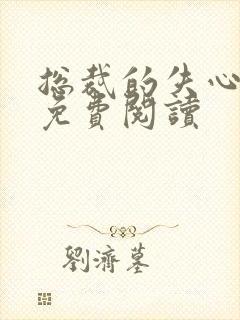 總裁的失心
免費閱讀
劉濟墓